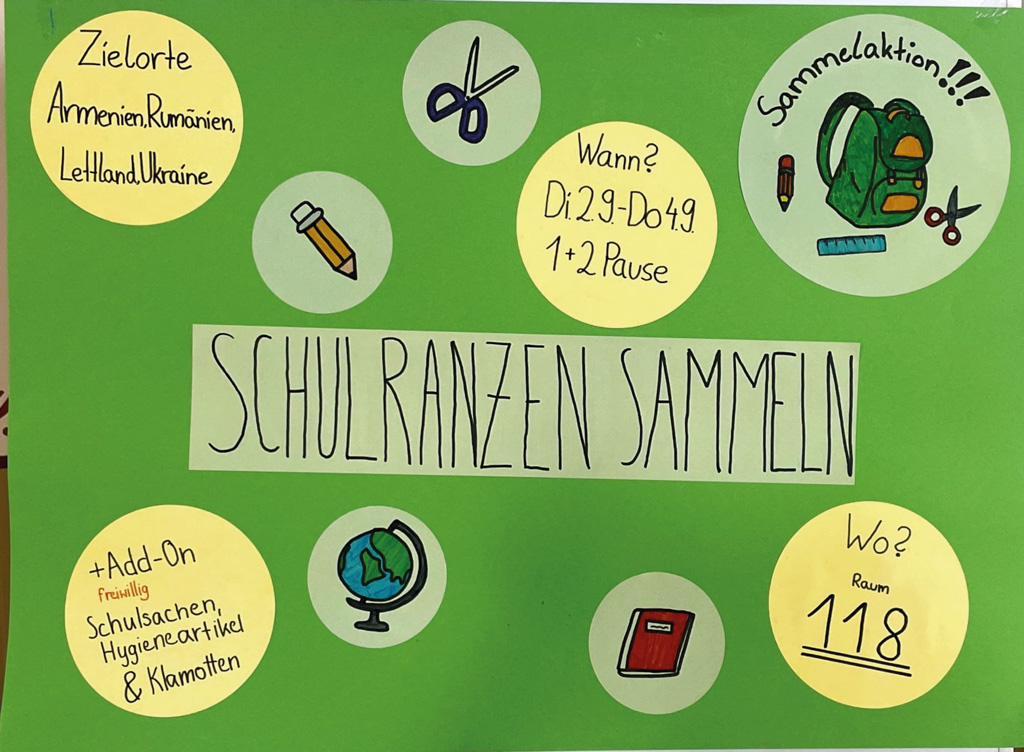 Zielorte
Armenien, Rumänien,
Lettland, Ukraine
Sammelaktion!!!
Wann?
Di. 2.9.-Do 4.9.
1+2 Pause
SCHULRANZEN SAMMELN
+Add-On
freiwillig
Schulsachen,
Hygieneartikel
& Klamotten
Wo?
Raum
118